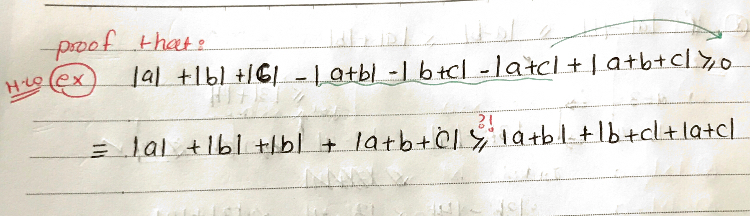 proof that:
H.w (ex) |a| + |b| + |c| - |a+b| - |b+c| - |a+c| + |a+b+c| ⩾ 0
≡ |a| + |b| + |b| + |a+b+c| ⩾?! |a+b| + |b+c| + |a+c|